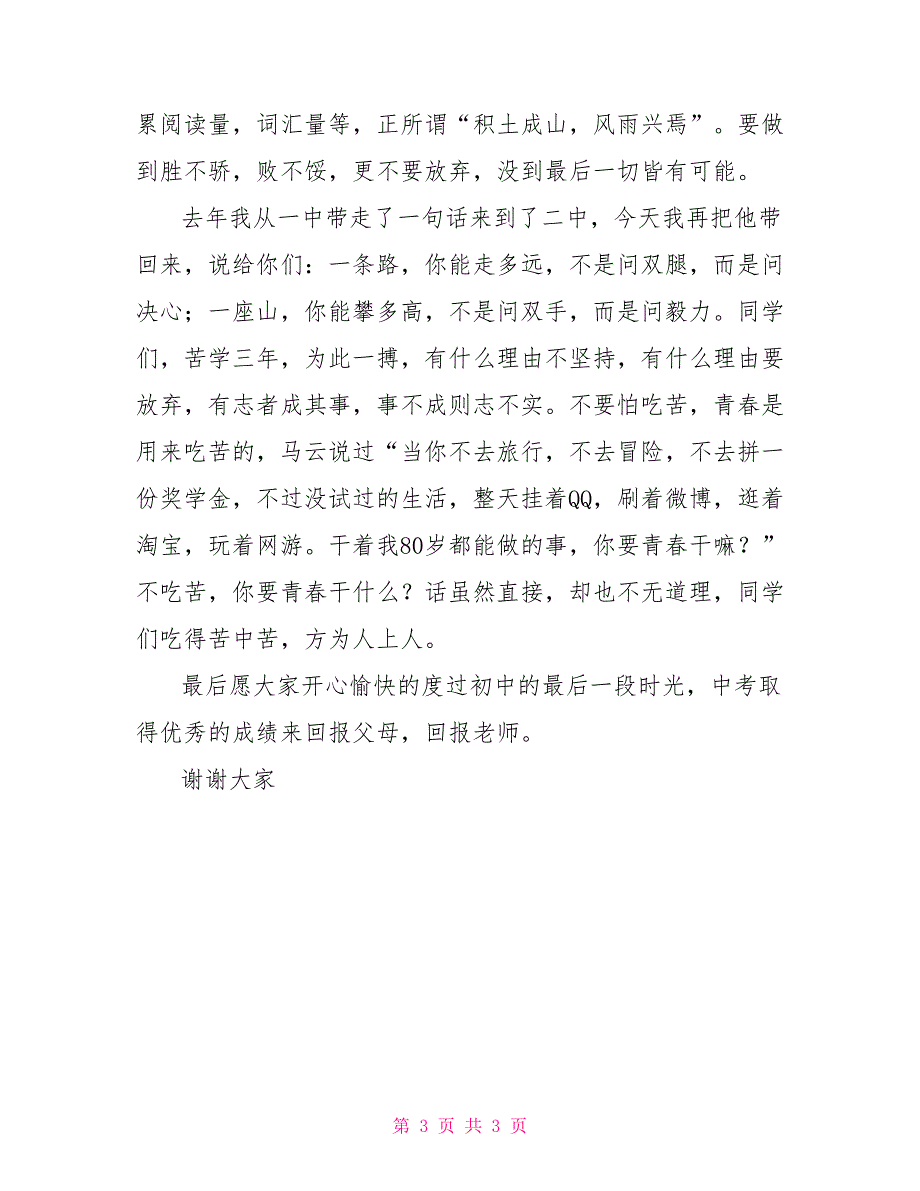 累阅读量，词汇量等，正所谓“积土成山，风雨兴焉”。要做
到胜不骄，败不馁，更不要放弃，没到最后一切皆有可能。
去年我从一中带走了一句话来到了二中，今天我再把他带
回来，说给你们：一条路，你能走多远，不是问双腿，而是问
决心；一座山，你能攀多高，不是问双手，而是问毅力。同学
们，苦学三年，为此一搏，有什么理由不坚持，有什么理由要
放弃，有志者成其事，事不成则志不实。不要怕吃苦，青春是
用来吃苦的，马云说过“当你不去旅行，不去冒险，不去拼一
份奖学金，不过没试过的生活，整天挂着QQ，刷着微博，逛着
淘宝，玩着网游。干着我80岁都能做的事，你要青春干嘛？”
不吃苦，你要青春干什么？话虽然直接，却也不无道理，同学
们吃得苦中苦，方为人上人。
最后愿大家开心愉快的度过初中的最后一段时光，中考取
得优秀的成绩来回报父母，回报老师。
谢谢大家
第 3 页 共 3 页